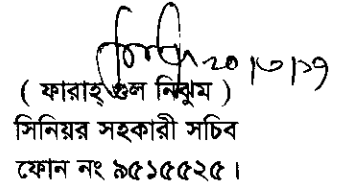 ২০।৩।১৭
( ফারাহ্ গুল নিঝুম )
সিনিয়র সহকারী সচিব
ফোন নং ৯৫১৫৫২৫।